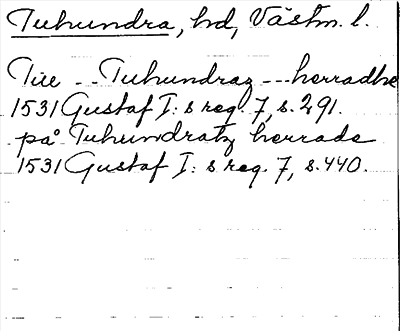 Tuhundra, hd, Västm. l.
Tiie -- Tuhundraz -- herradhe
1531 Gustaf I:s reg. 7, s. 291.
på Tuhundratz herrade
1531 Gustaf I:s reg. 7, s. 440.